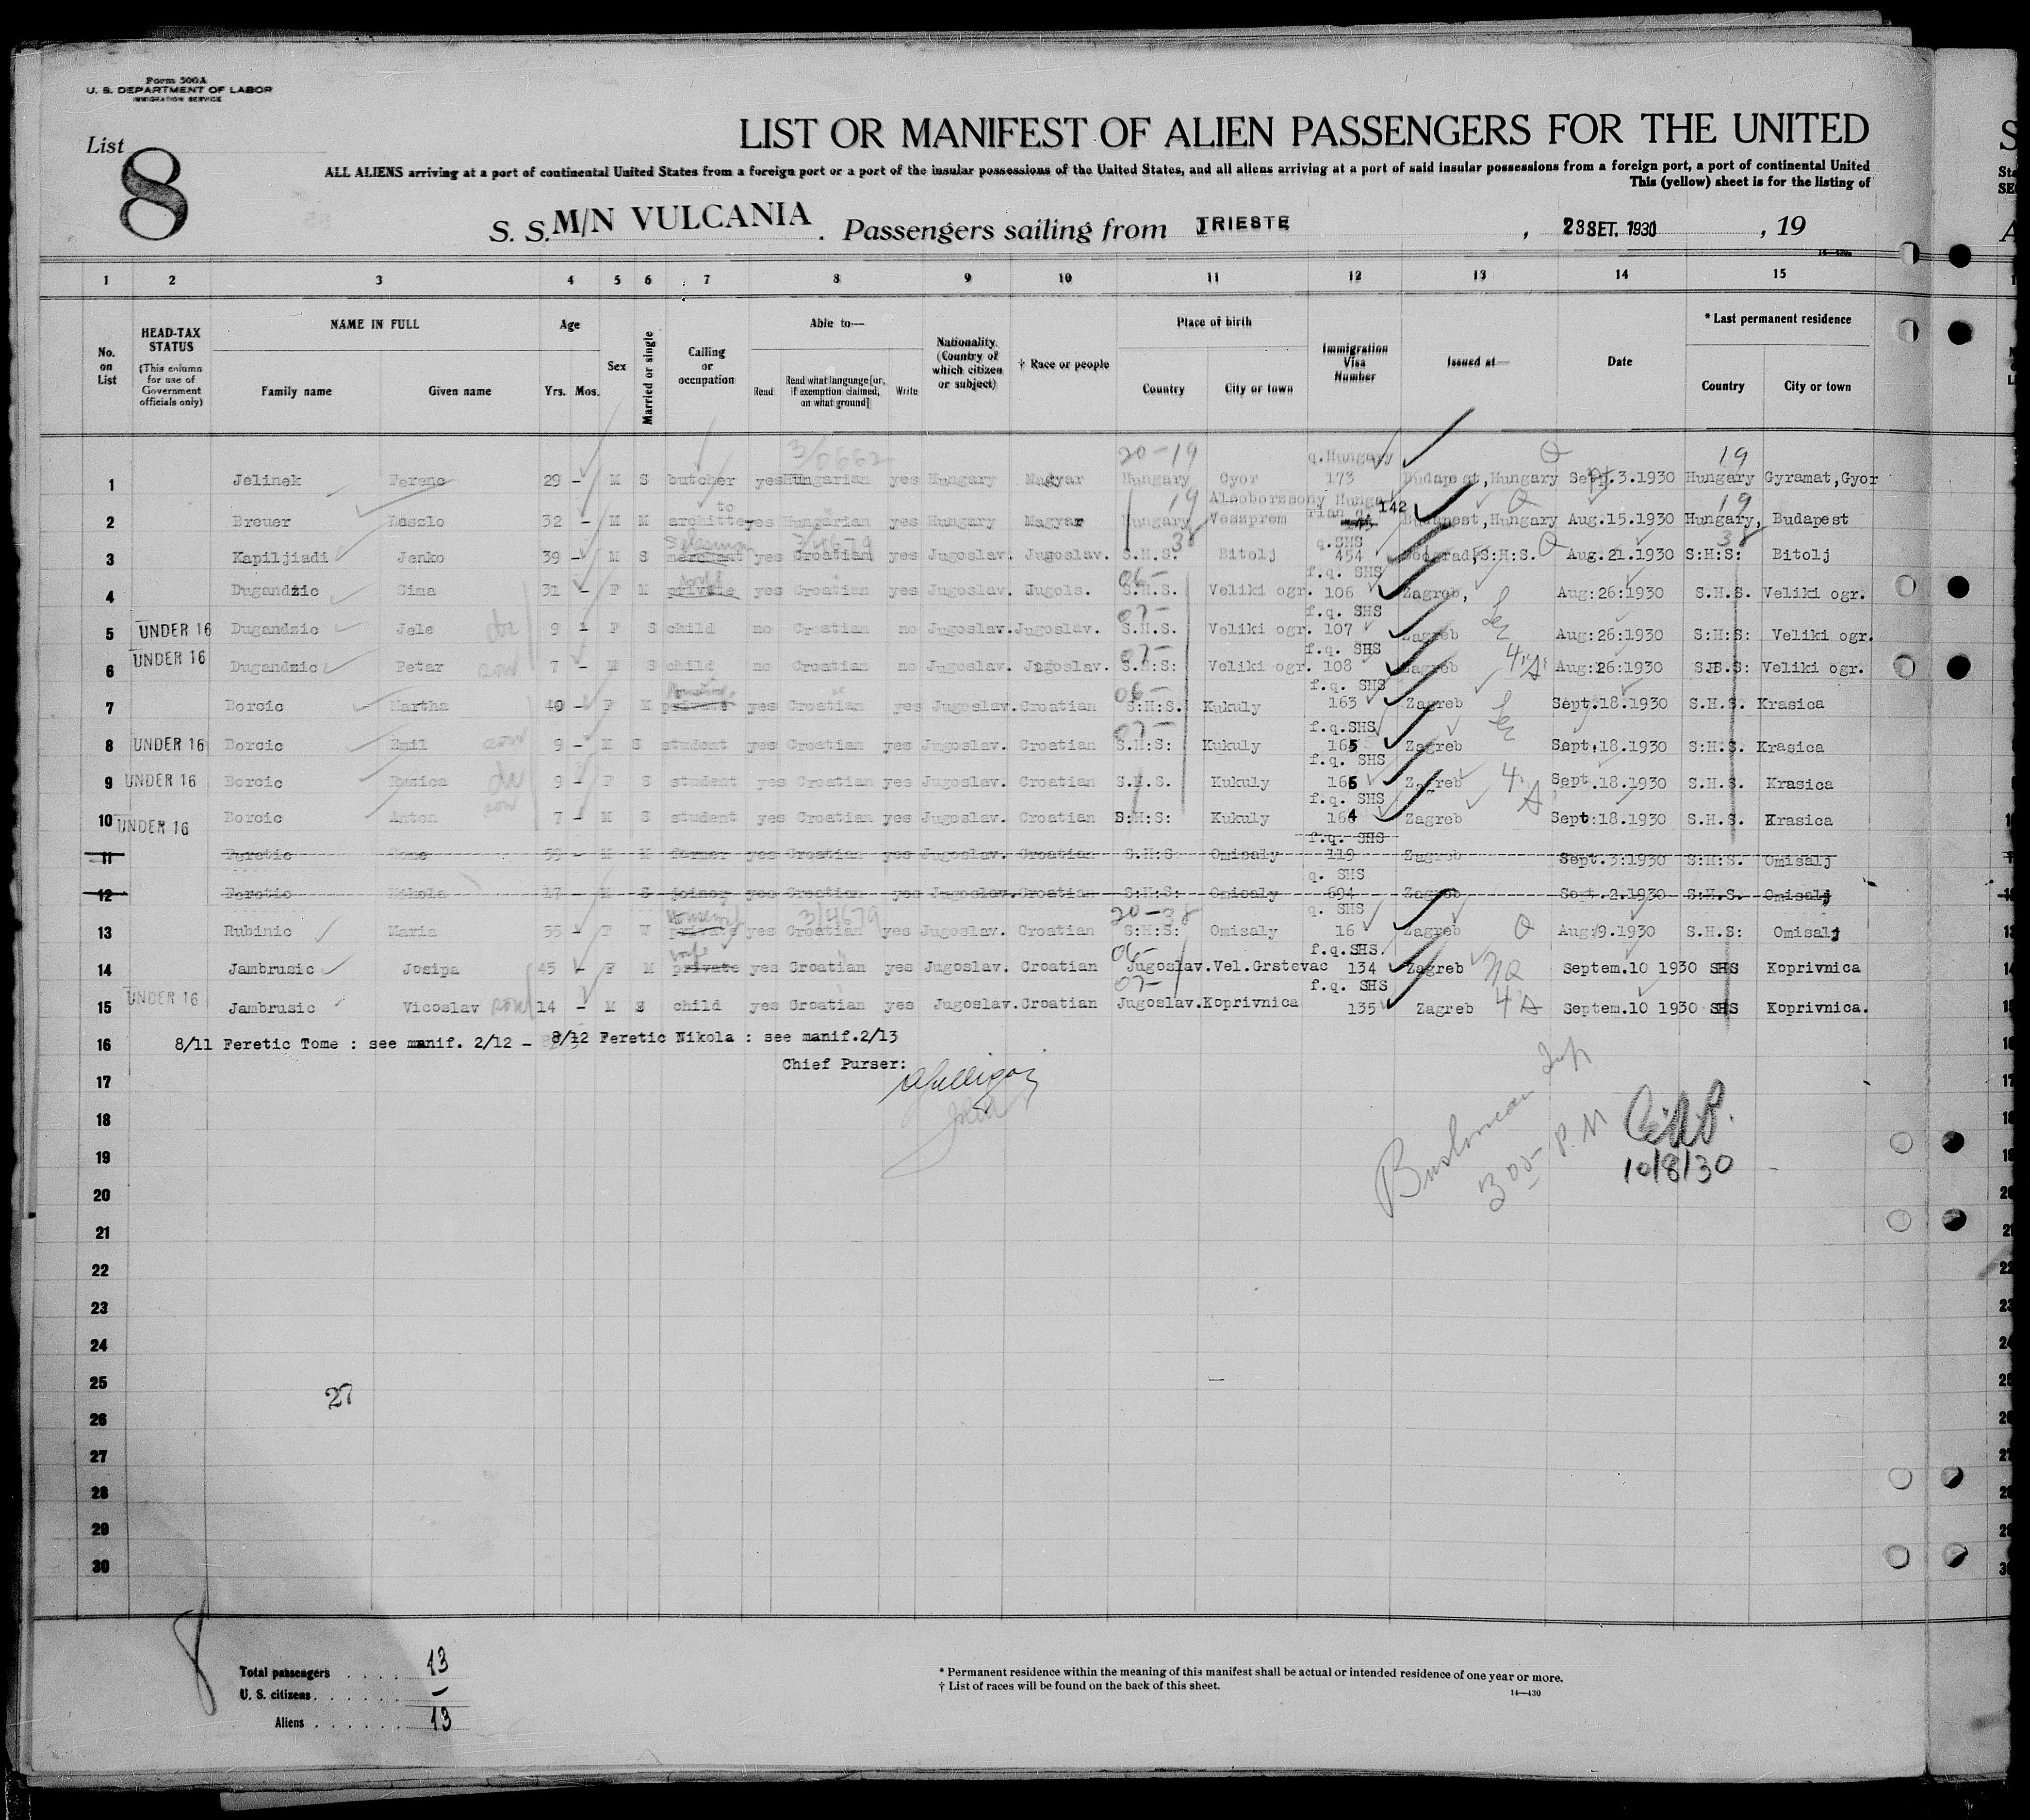 Form 500A
U. S. DEPARTMENT OF LABOR
IMMIGRATION SERVICE
List 8
LIST OR MANIFEST OF ALIEN PASSENGERS FOR THE UNITED
ALL ALIENS arriving at a port of continental United States from a foreign port or a port of the insular possessions of the United States, and all aliens arriving at a port of said insular possessions from a foreign port, a port of continental United
This (yellow) sheet is for the listing of
S. S. M/N VULCANIA. Passengers sailing from TRIESTE, 23 SET. 1930, 19
14—430a
1 2 3 4 5 6 7 8 9 10 11 12 13 14 15
No. on List
HEAD-TAX STATUS (This column for use of Government officials only)
NAME IN FULL Family name Given name
Age Yrs. Mos.
Sex
Married or single
Calling or occupation
Able to— Read Read what language [or, if exemption claimed, on what ground] Write
Nationality. (Country of which citizen or subject)
† Race or people
Place of birth Country City or town
Immigration Visa Number
Issued at—
Date
* Last permanent residence Country City or town
3/0662 20-19 q.Hungary Q 19
1 Jelinek Ferenc 29 - M S butcher yes Hungarian yes Hungary Magyar Hungary Gyor 173 Budapest,Hungary Sept.3.1930 Hungary Gyramat,Gyor
to 19 Alsoborzsony Hungarian q. 142 Q 19
2 Breuer Laszlo 32 - M M architte yes Hungarian yes Hungary Magyar Hungary Veszprem Budapest,Hungary Aug.15.1930 Hungary, Budapest
Salesman 3/4679 38 q.SHS Q 38
3 Kapiljiadi Jenko 39 - M S merchant yes Croatian yes Jugoslav. Jugoslav. S.H.S. Bitolj 454 Beograd,S:H:S. Aug.21.1930 S:H:S: Bitolj
wife 06- f.q. SHS
4 Dugandzic Sima 31 - F M private yes Croatian yes Jugoslav. Jugols. S.H.S. Veliki ogr. 106 Zagreb, Aug:26:1930 S.H.S. Veliki ogr.
07- f.q. SHS
5 UNDER 16 Dugandzic Jele 9 - F S child no Croatian no Jugoslav. Jugoslav. S.H.S. Veliki ogr. 107 Zagreb Aug:26:1930 S:H:S: Veliki ogr.
07- f.q. SHS
6 UNDER 16 Dugandzic Petar son 7 - M S child no Croatian no Jugoslav. Jugoslav. S.H:S: Veliki ogr. 108 Zagreb Aug:26:1930 Veliki ogr.
06- f.q. SHS
7 Borcic Martha 40 - F M private yes Croatian yes Jugoslav. Croatian S:H:S. Kukuly 163 Zagreb Sept.18.1930 S.H.S. Krasica
07- f.q.SHS
8 UNDER 16 Borcic Emil son 9 - M S student yes Croatian yes Jugoslav. Croatian S.H:S: Kukuly 165 Zagreb Sept.18.1930 S:H:S. Krasica
f.q. SHS
9 UNDER 16 Borcic Ruzica 9 - F S student yes Croatian yes Jugoslav. Croatian S.H.S. Kukuly 166 Zagreb Sept.18.1930 S.H.S. Krasica
f.q. SHS
10 UNDER 16 Borcic Anton son 7 - M S student yes Croatian yes Jugoslav. Croatian S:H:S: Kukuly 164 Zagreb Sept:18.1930 S.H.S. Krasica
f.q. SHS
11 Feretic Tome 59 - M M farmer yes Croatian yes Jugoslav. Croatian S.H:S Omisaly 119 Zagreb Sept.3:1930 S:H:S. Omisalj
q. SHS
12 Feretic Nikola 17 - M S joiner yes Croatian yes Jugoslav. Croatian S:H:S: Omisaly 694 Zagreb Sept.2.1930 S:H.S. Omisalj
3/4679 20-38 q. SHS
13 Rubinic Maria 55 - F W private yes Croatian yes Jugoslav. Croatian S:H:S: Omisaly 16 Zagreb Q Aug:9.1930 S.H.S: Omisalj
wife 06- f.q.SHS.
14 Jambrusic Josipa 45 - F M private yes Croatian yes Jugoslav. Croatian Jugoslav. Vel.Grstevac 134 Zagreb NQ Septem.10 1930 SHS Koprivnica
07- f.q. SHS
15 UNDER 16 Jambrusic Vicoslav son 14 - M S child yes Croatian yes Jugoslav. Croatian Jugoslav. Koprivnica 135 Zagreb Septem.10 1930 SHS Koprivnica.
16 8/11 Feretic Tome : see manif. 2/12 - 8/12 Feretic Nikola : see manif.2/13
Chief Purser:
17
18
19
300 P.M
10/8/30
20
21
22
23
24
25
27
26
27
28
29
30
8
Total passengers 13
U. S. citizens —
Aliens 13
* Permanent residence within the meaning of this manifest shall be actual or intended residence of one year or more.
† List of races will be found on the back of this sheet.
14—430